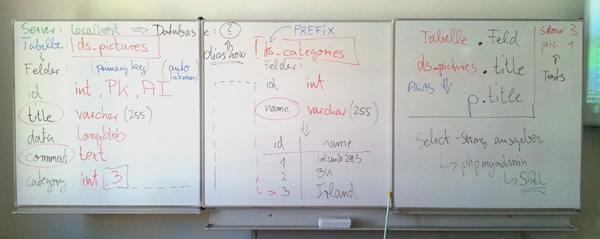 Server: localhost → Database: ?
Tabelle ds_pictures
Felder: (primary key) (auto
id int, PK, AI
title varchar (255)
data Longblob
comment text
category int 3
PREFIX
diashow
ds_categories
Felder:
id int
name varchar (255)
id name
1
2 BU
3 Irland
Tabelle . Feld
ds_pictures . title
p . title
show 3
pic 1
Select - String ausgeben
→ phpmyadmin
→ SQL